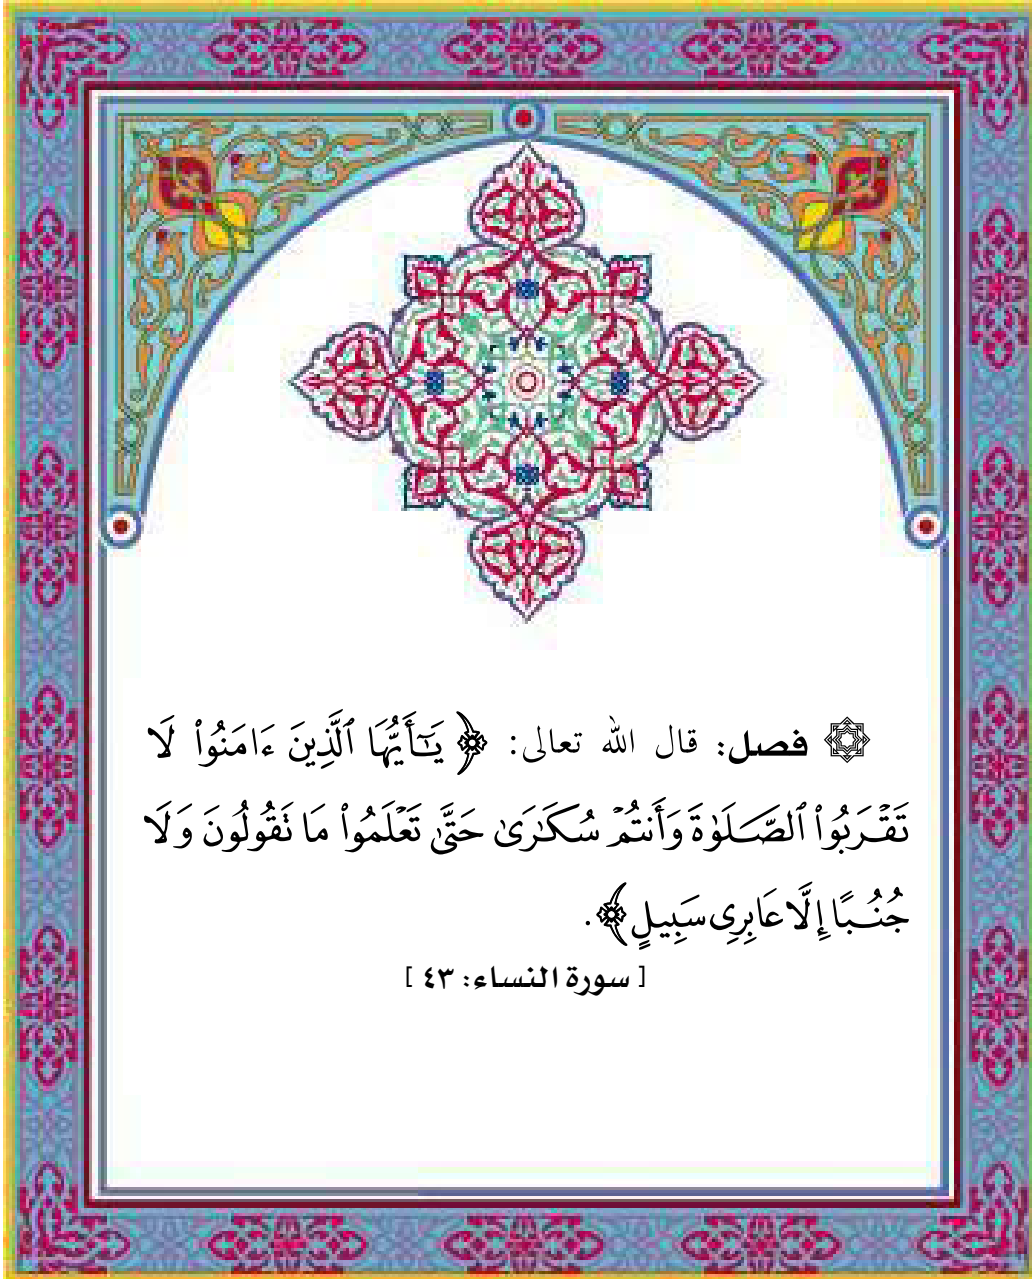 ۞ فصل: قال الله تعالى: ﴿يَٰٓأَيُّهَا ٱلَّذِينَ ءَامَنُوا۟ لَا
تَقْرَبُوا۟ ٱلصَّلَوٰةَ وَأَنتُمْ سُكَٰرَىٰ حَتَّىٰ تَعْلَمُوا۟ مَا تَقُولُونَ وَلَا
جُنُبًا إِلَّا عَابِرِى سَبِيلٍ﴾.
[سورة النساء: ٤٣]